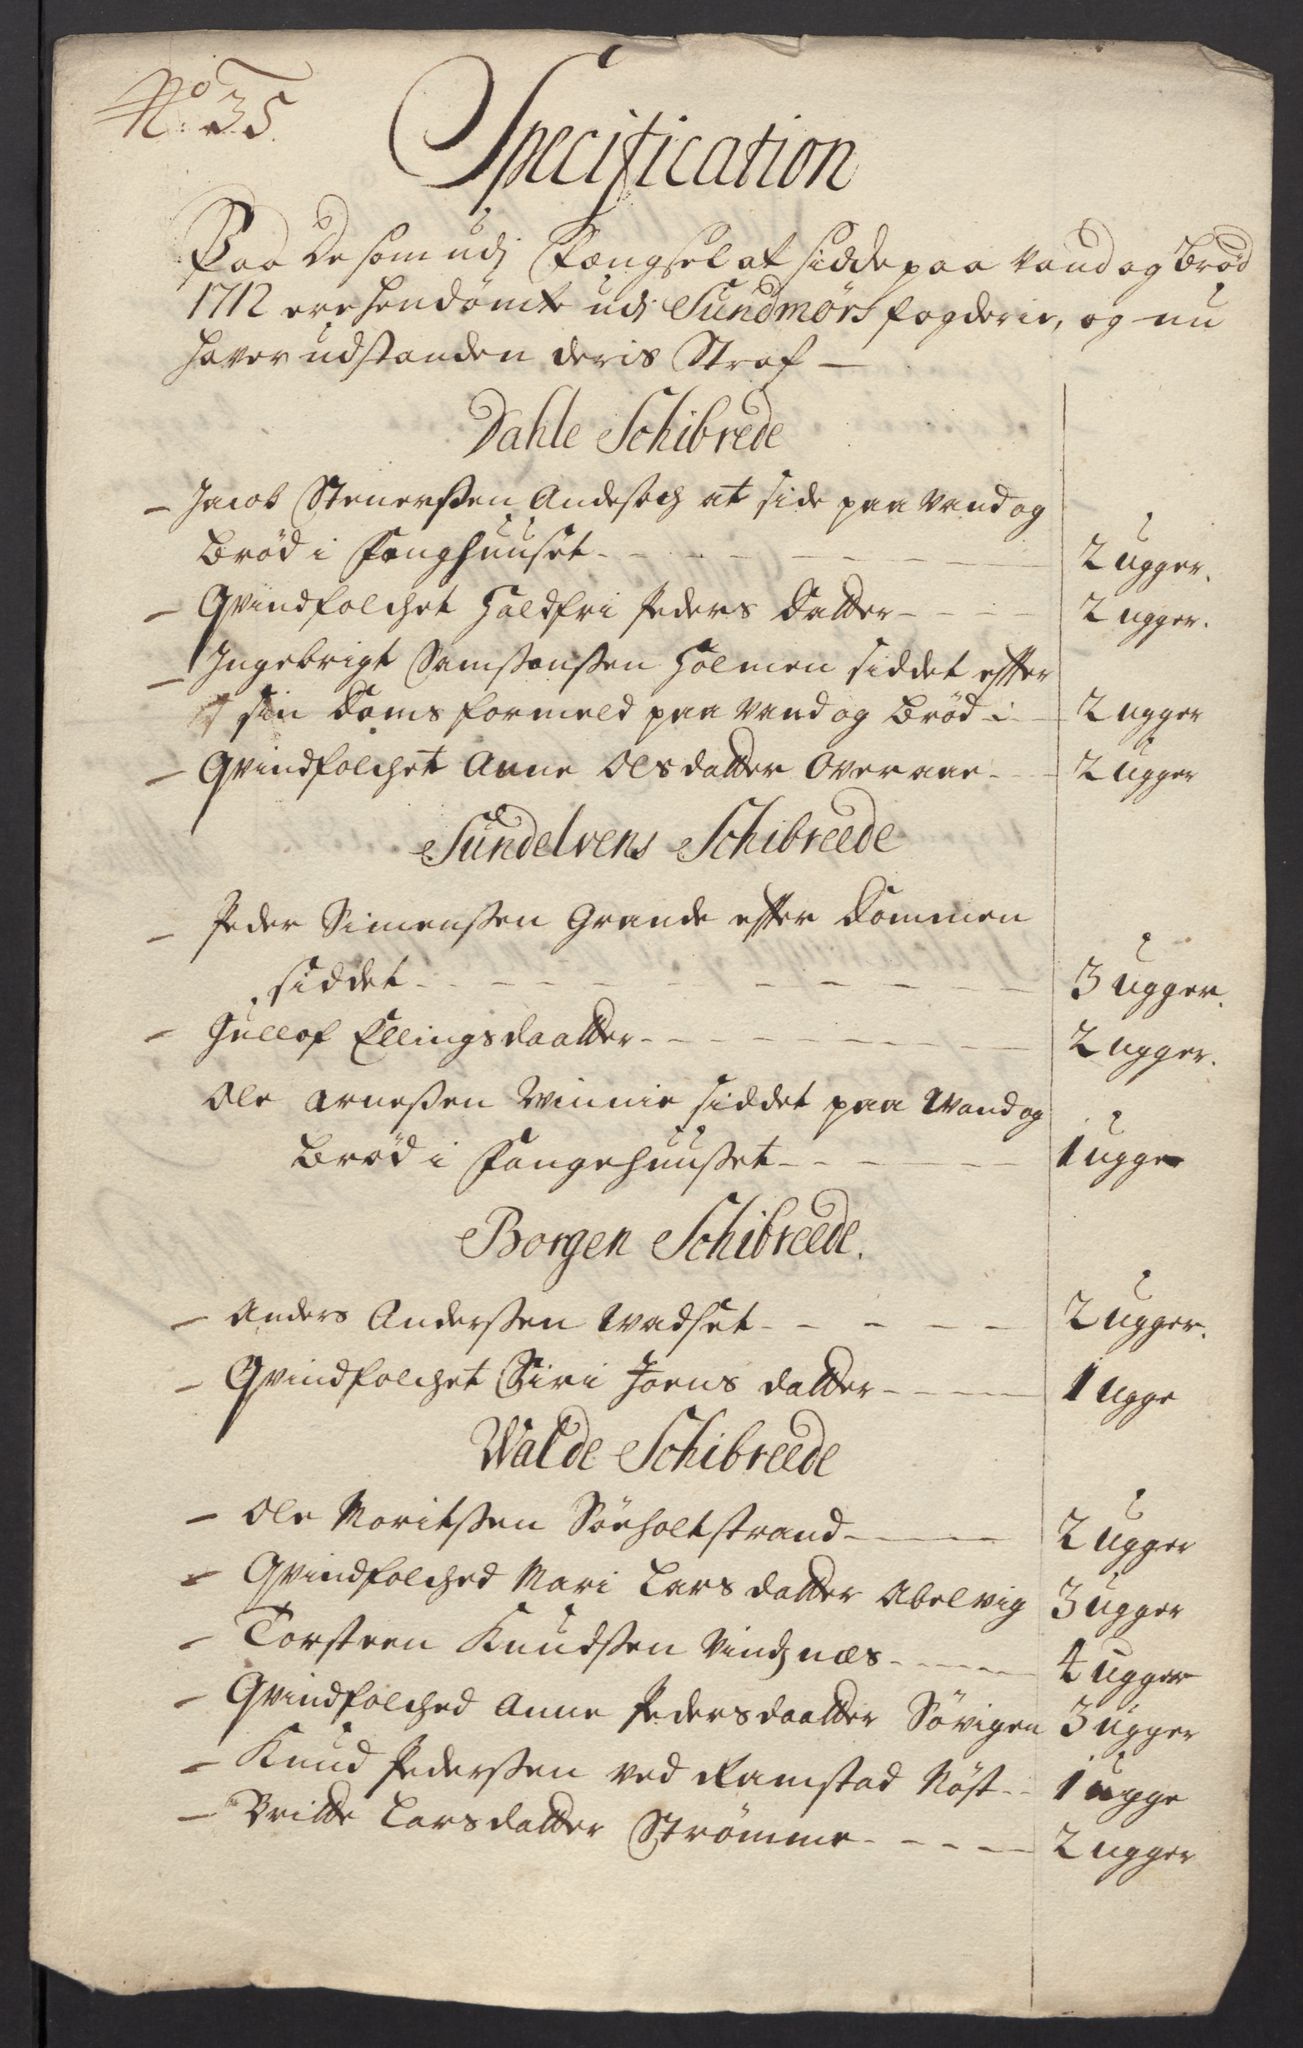 No: 35.
Specification
Paa De som udj Fængsel at sidde paa vand og brød
1712 ere hendømte udj Sundmørs fogderie, og nu
haver udstanden deris Straf —
Dahle Schibrede
- Jacob Stenerssen Andesteg at side paa vand og
brød i Fanghuuset - - - 2 ugger.
- Qvindfolchet Holdfri Peders Datter - - 2 ugger.
- Ingebrigt Samsonssen Holmen siddet effter
sin Doms formeld paa vand og brød i - 2 ugger
- Qvindfolchet Anne Olsdatter Overaae - - 2 ugger
Sundelvens Schibreede
- Peder Simenssen Grande effter Dommen
siddet - - - 3 ugger.
- Gullof Ellingsdaatter - - - 2 ugger.
Ole Arnessen Winnie siddet paa Wand og
brød i Fangehuusset - - - 1 ugge
Borgen Schibreede.
- Anders Anderssen Wadset - - - 2 ugger.
- Qvindfolchet Siri Joens datter - - - 1 ugge
Walde Schibreede
- Ole Moritssen Söeholtstrand - - - 2 ugger
- Qvindfolched Mari Lars datter Abelvig 3 ugger
- Torsteen Knudssen Vindznæs - - - 4 ugger
- Qvindfolched Anne Pedersdaatter Sövigen 3 ugger
- Knud Pederssen ved Ramstad Nöst - - 1 ugge
- Britte Larsdatter Strømme - - - 2 ugger